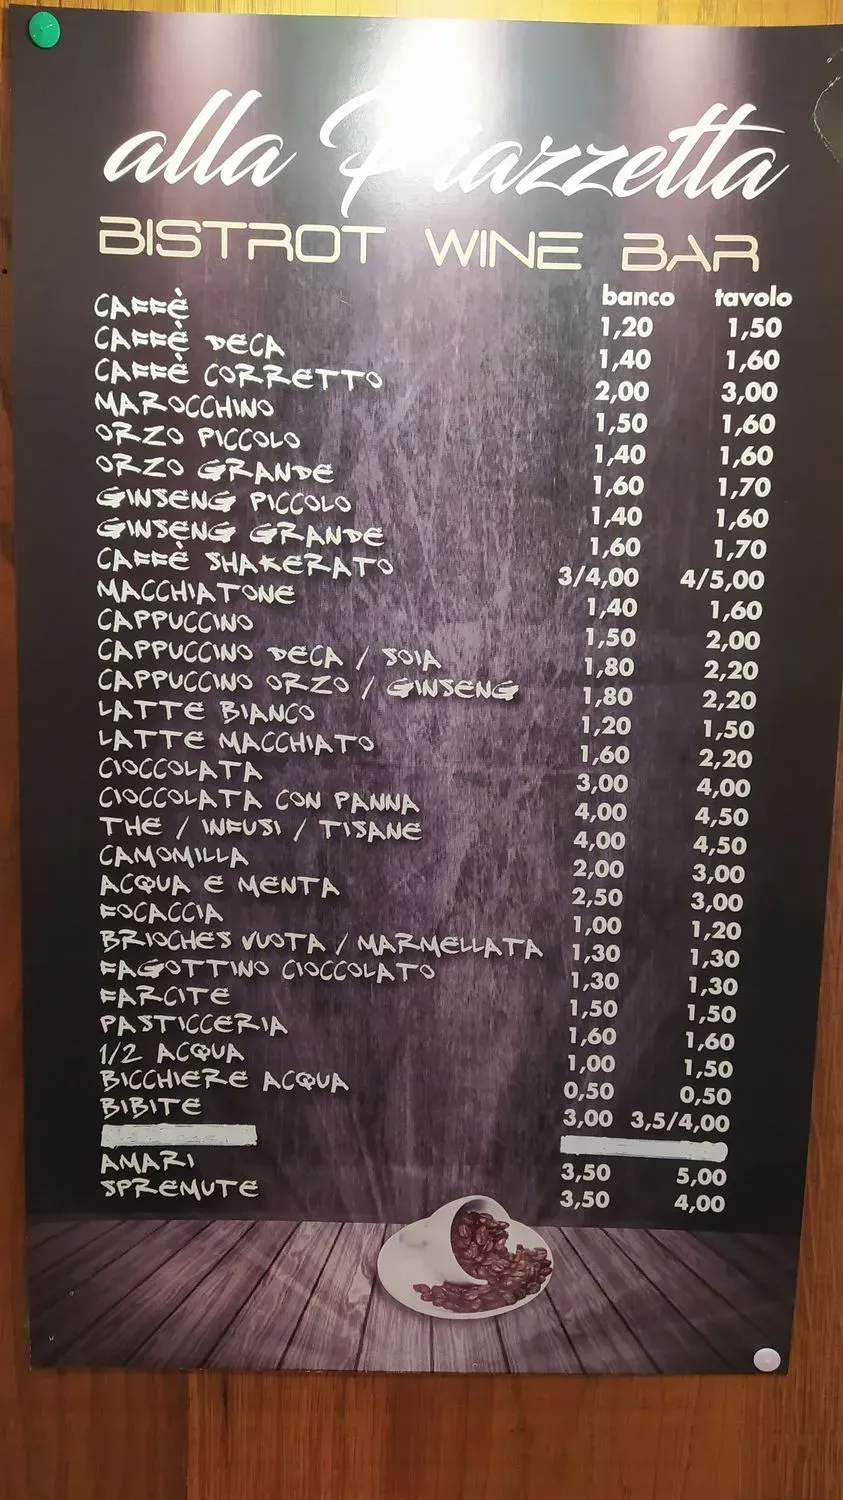 alla Piazzetta
BISTROT WINE BAR
banco tavolo
CAFFÈ 1,20 1,50
CAFFÈ DECA 1,40 1,60
CAFFÈ CORRETTO 2,00 3,00
MAROCCHINO 1,50 1,60
ORZO PICCOLO 1,40 1,60
ORZO GRANDE 1,60 1,70
GINSENG PICCOLO 1,40 1,60
GINSENG GRANDE 1,60 1,70
CAFFÈ SHAKERATO 3/4,00 4/5,00
MACCHIATONE 1,40 1,60
CAPPUCCINO 1,50 2,00
CAPPUCCINO DECA / SOIA 1,80 2,20
CAPPUCCINO ORZO / GINSENG 1,80 2,20
LATTE BIANCO 1,20 1,50
LATTE MACCHIATO 1,60 2,20
CIOCCOLATA 3,00 4,00
CIOCCOLATA CON PANNA 4,00 4,50
THE / INFUSI / TISANE 4,00 4,50
CAMOMILLA 2,00 3,00
ACQUA E MENTA 2,50 3,00
FOCACCIA 1,00 1,20
BRIOCHES VUOTA / MARMELLATA 1,30 1,30
FAGOTTINO CIOCCOLATO 1,30 1,30
FARCITE 1,50 1,50
PASTICCERIA 1,60 1,60
1/2 ACQUA 1,00 1,50
BICCHIERE ACQUA 0,50 0,50
BIBITE 3,00 3,5/4,00
AMARI 3,50 5,00
SPREMUTE 3,50 4,00